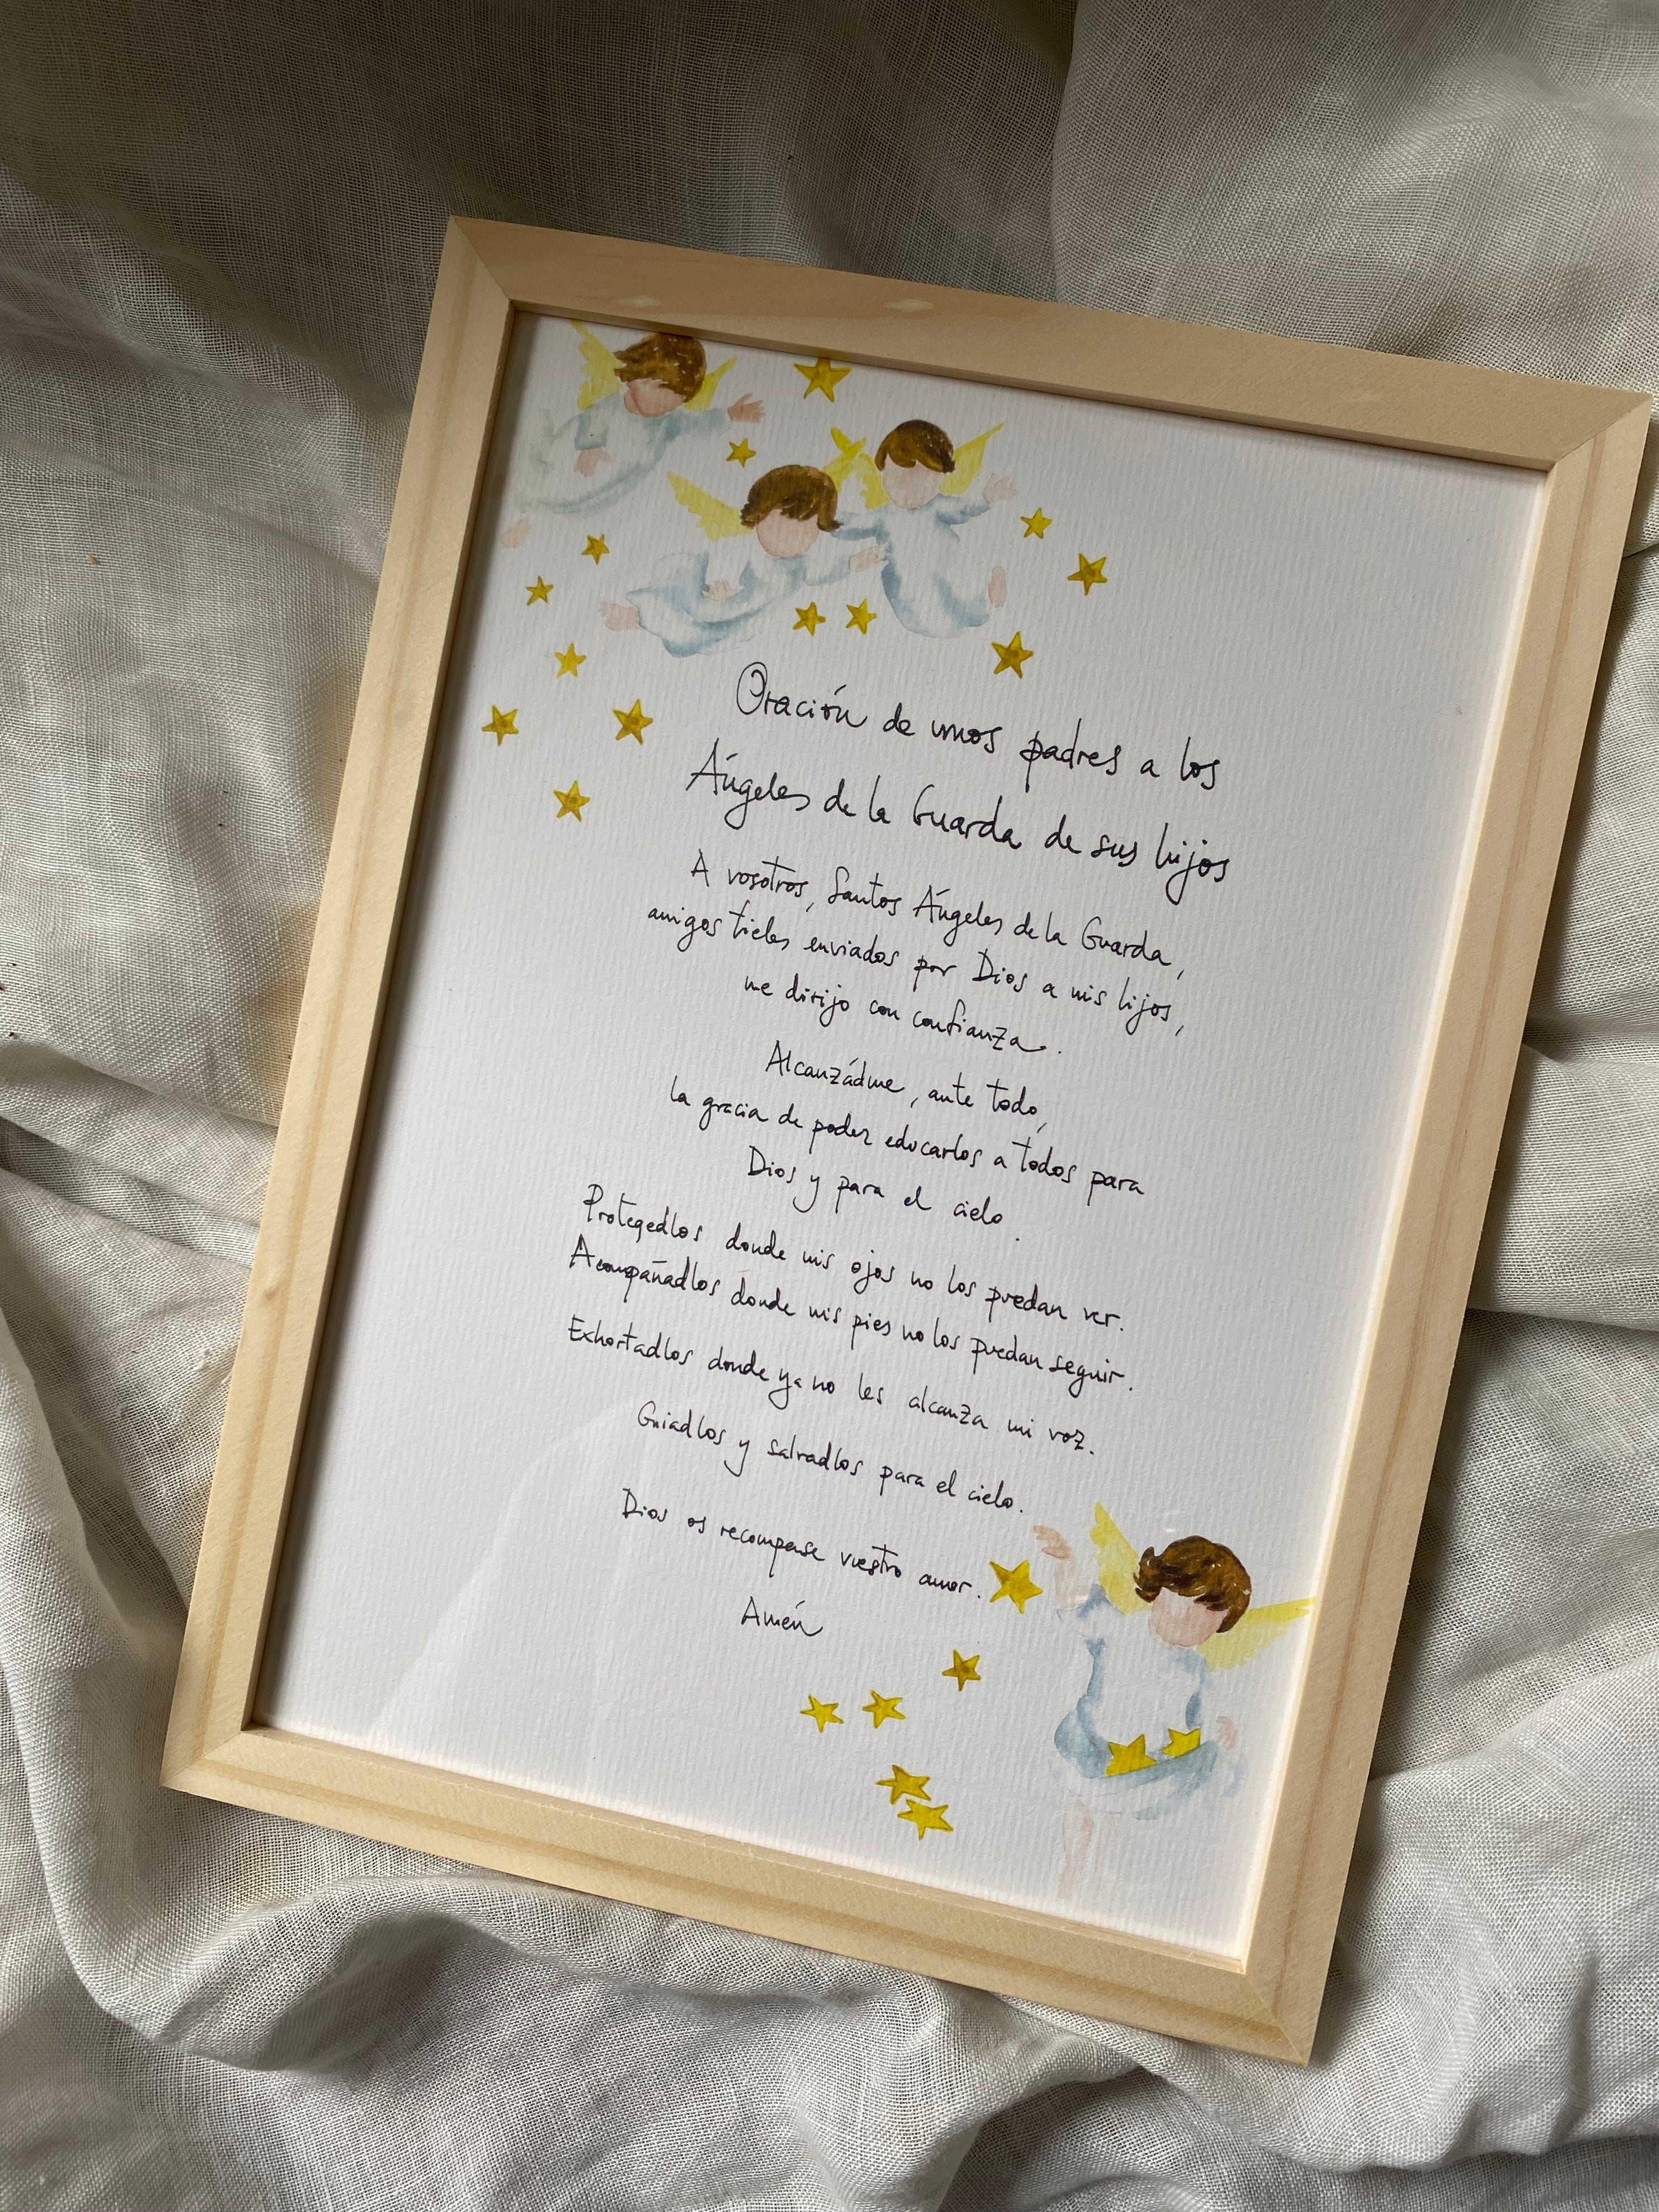 Oración de unos padres a los
Ángeles de la Guarda de sus hijos
A vosotros, Santos Ángeles de la Guarda,
amigos fieles enviados por Dios a mis hijos,
me dirijo con confianza.
Alcanzádme, ante todo,
la gracia de poder educarlos a todos para
Dios y para el cielo.
Protegedlos donde mis ojos no los puedan ver.
Acompañadlos donde mis pies no los puedan seguir.
Exhortadlos donde ya no les alcanza mi voz.
Guiadlos y salvadlos para el cielo.
Dios os recompense vuestro amor.
Amén